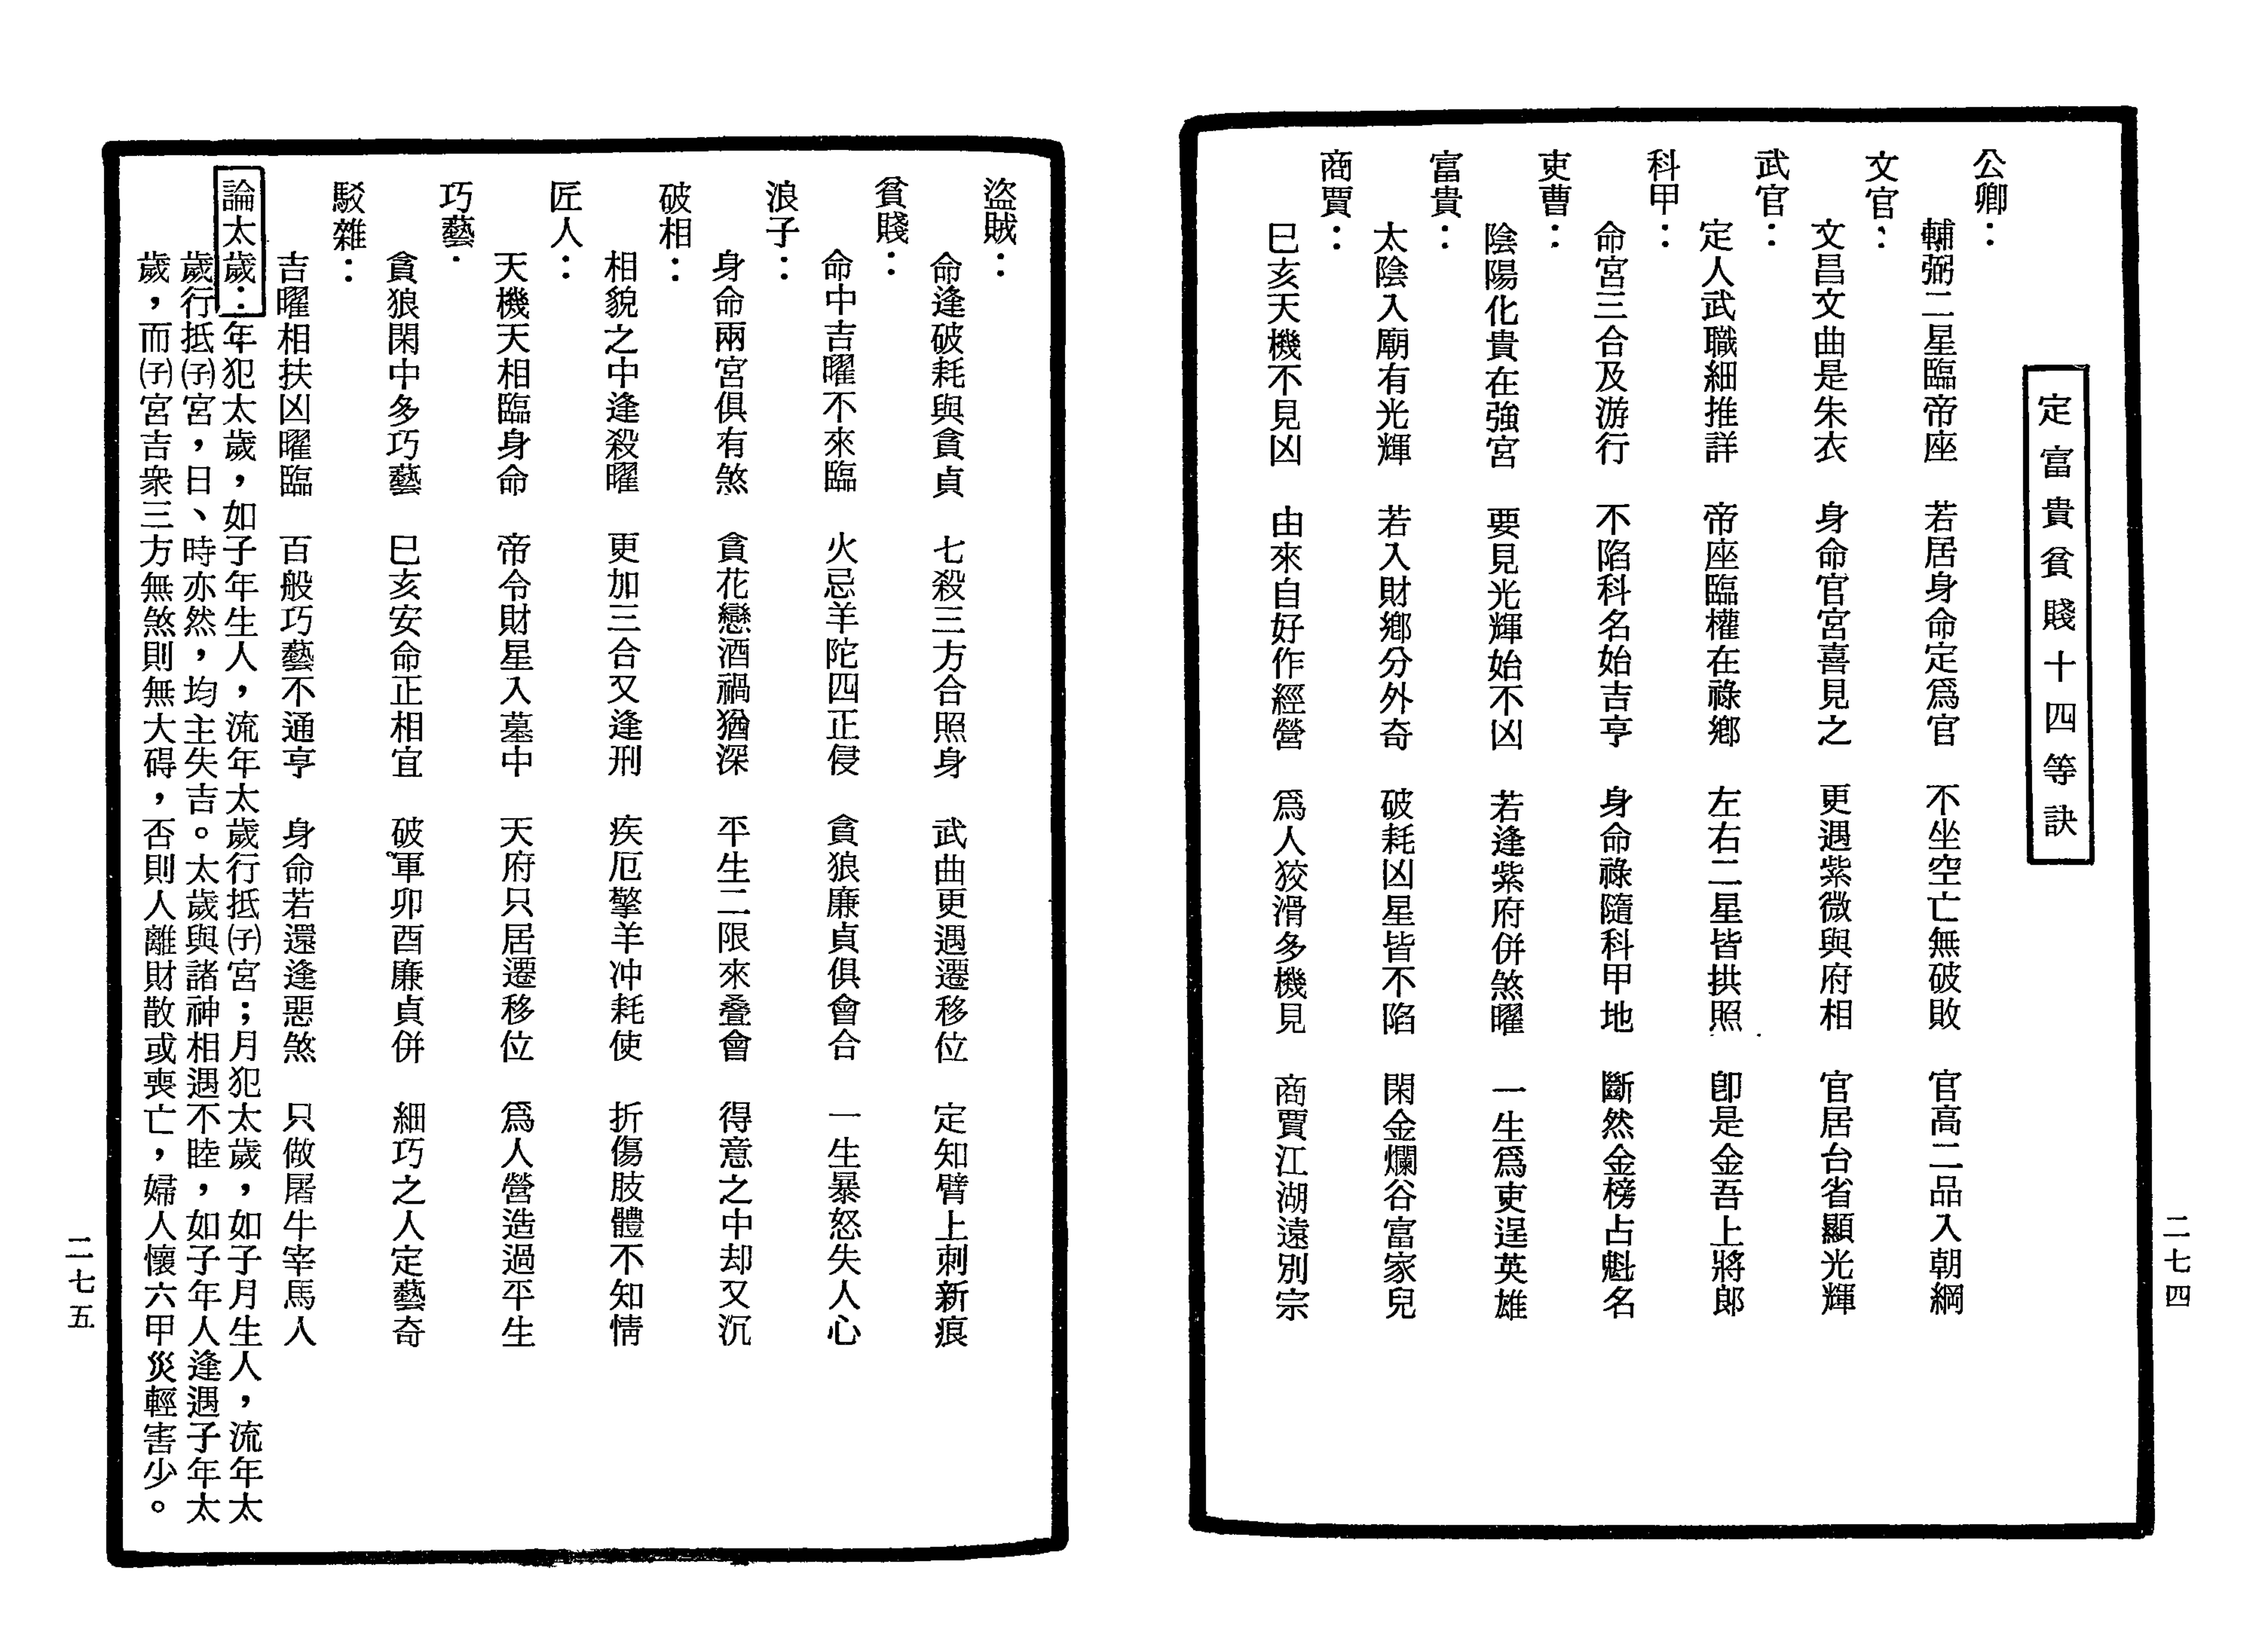 二七四
定富貴貧賤十四等訣
公卿：
輔弼二星臨帝座　若居身命定爲官　不坐空亡無破敗　官高二品入朝綱
文官：
文昌文曲是朱衣　身命官宮喜見之　更遇紫微與府相　官居台省顯光輝
武官：
定人武職細推詳　帝座臨權在祿鄉　左右二星皆拱照　卽是金吾上將郞
科甲：
命宮三合及游行　不陷科名始吉亨　身命祿隨科甲地　斷然金榜占魁名
吏曹：
陰陽化貴在強宮　要見光輝始不凶　若逢紫府併煞曜　一生爲吏逞英雄
富貴：
太陰入廟有光輝　若入財鄉分外奇　破耗凶星皆不陷　閑金爛谷富家兒
商賈：
巳亥天機不見凶　由來自好作經營　爲人狡滑多機見　商賈江湖遠別宗
盜賊：
命逢破耗與貪貞　七殺三方合照身　武曲更遇遷移位　定知臂上刺新痕
貧賤：
命中吉曜不來臨　火忌羊陀四正侵　貪狼廉貞俱會合　一生暴怒失人心
浪子：
身命兩宮俱有煞　貪花戀酒禍猶深　平生二限來叠會　得意之中却又沉
破相：
相貌之中逢殺曜　更加三合又逢刑　疾厄擎羊冲耗使　折傷肢體不知情
匠人：
天機天相臨身命　帝令財星入墓中　天府只居遷移位　爲人營造過平生
巧藝．
貪狼閑中多巧藝　巳亥安命正相宜　破軍卯酉廉貞併　細巧之人定藝奇
駁雜：
吉曜相扶凶曜臨　百般巧藝不通亨　身命若還逢惡煞　只做屠牛宰馬人
論太歲：年犯太歲，如子年生人，流年太歲行抵㈻宮；月犯太歲，如子月生人，流年太
歲行抵(子)宮，日、時亦然，均主失吉。太歲與諸神相遇不睦，如子年人逢遇子年太
歲，而(子)宮吉衆三方無煞則無大碍，否則人離財散或喪亡，婦人懷六甲災輕害少。
二七五